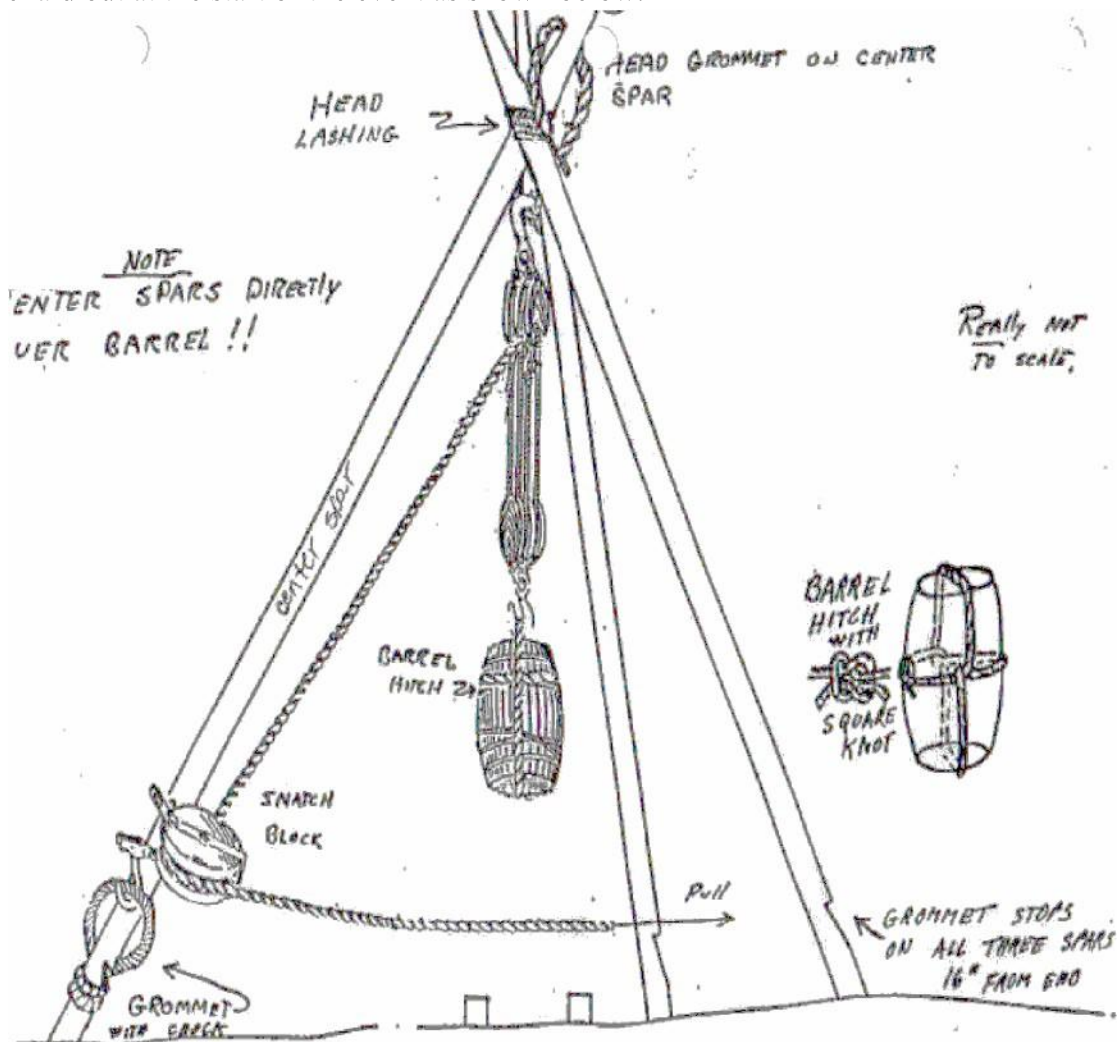 HEAD GROMMET ON CENTER
SPAR
HEAD
LASHING
NOTE
ENTER SPARS DIRECTLY
UER BARREL !!
REALLY NOT
TO SCALE.
center spar
BARREL
HITCH
BARREL
HITCH
WITH
SQUARE
KNOT
SNATCH
BLOCK
PULL
GROMMET STOPS
ON ALL THREE SPARS
16" FROM END
GROMMET
WITH